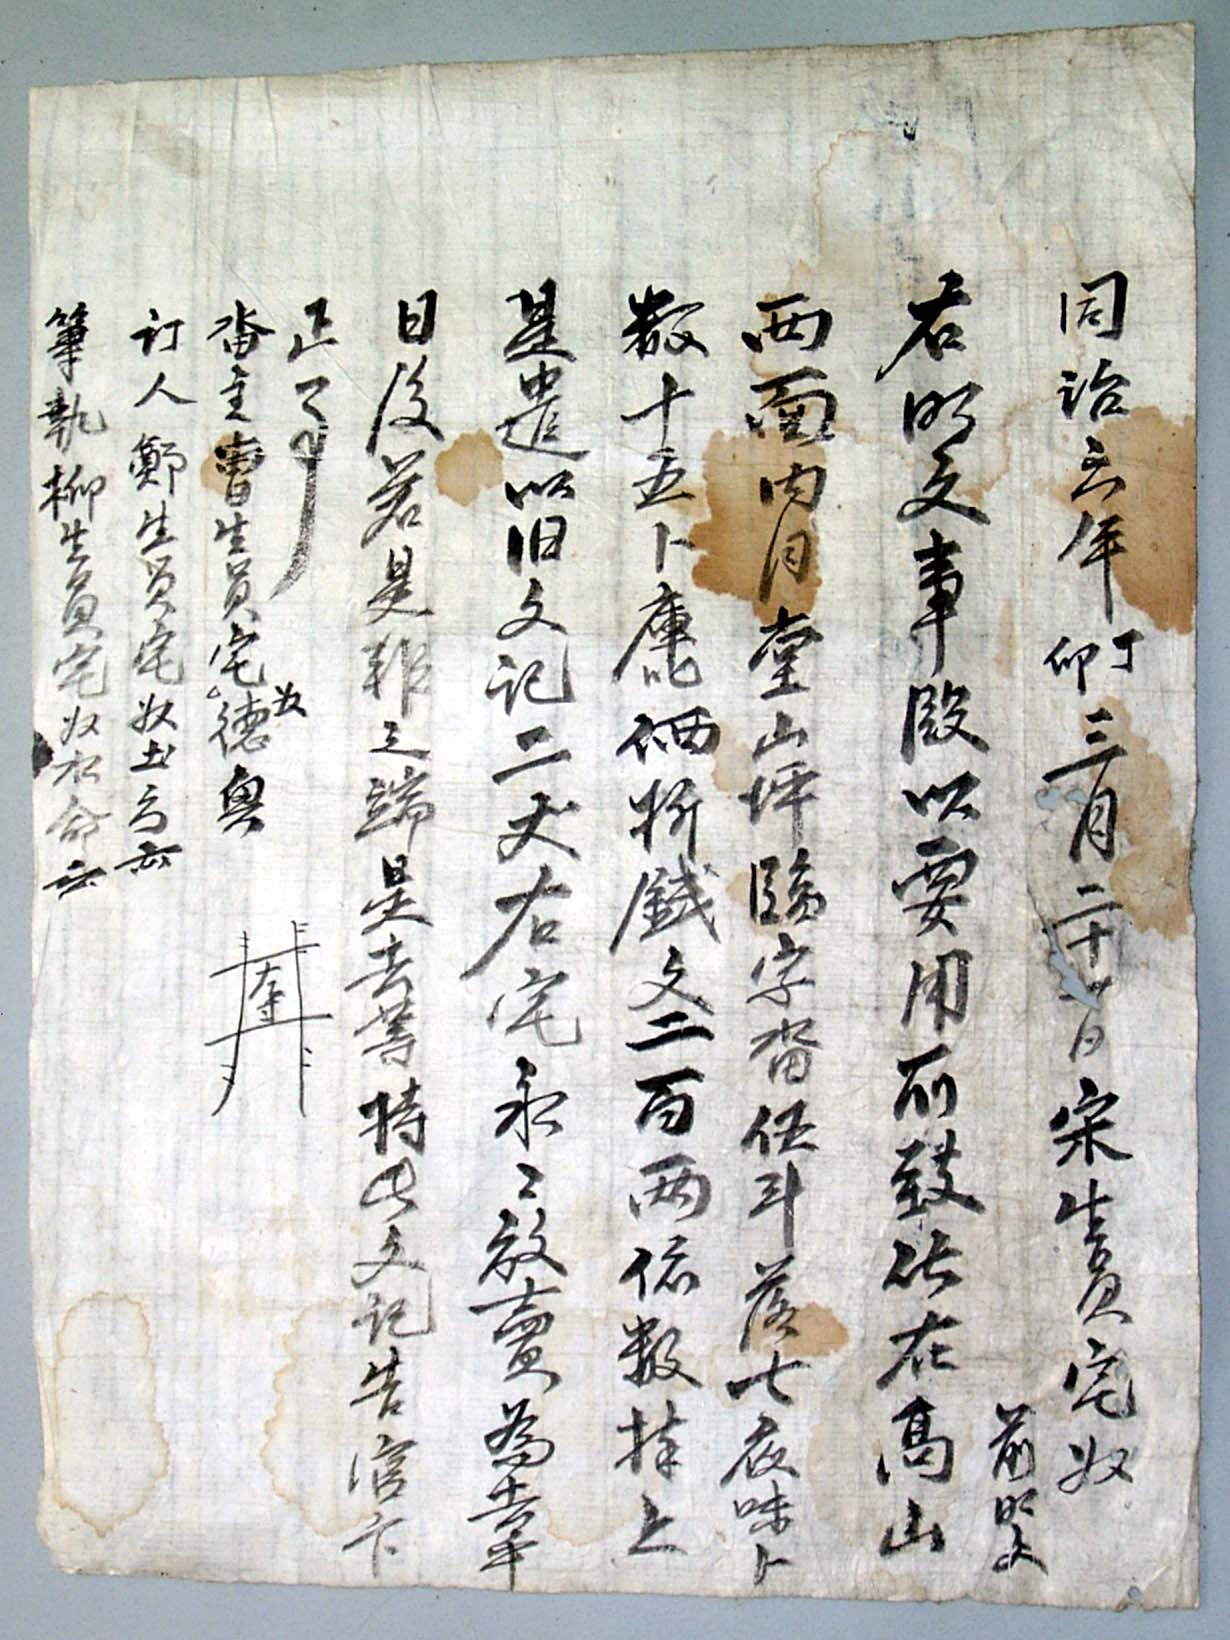 同治六年丁卯三月二十日宋生員宅奴
前明文
右明文事段以要用所致伏在高山
西面內月堂山坪臨字畓伍斗落七夜味卜
数十五卜庫乙価折錢文二百両依数捧上
是遣以旧文記二丈右宅永々放賣爲去乎
日後若是雜之端是去等持此文記告官卞
正了事
畓主曺生員宅奴德奧
訂人鄭生員宅奴
筆執柳生員宅奴